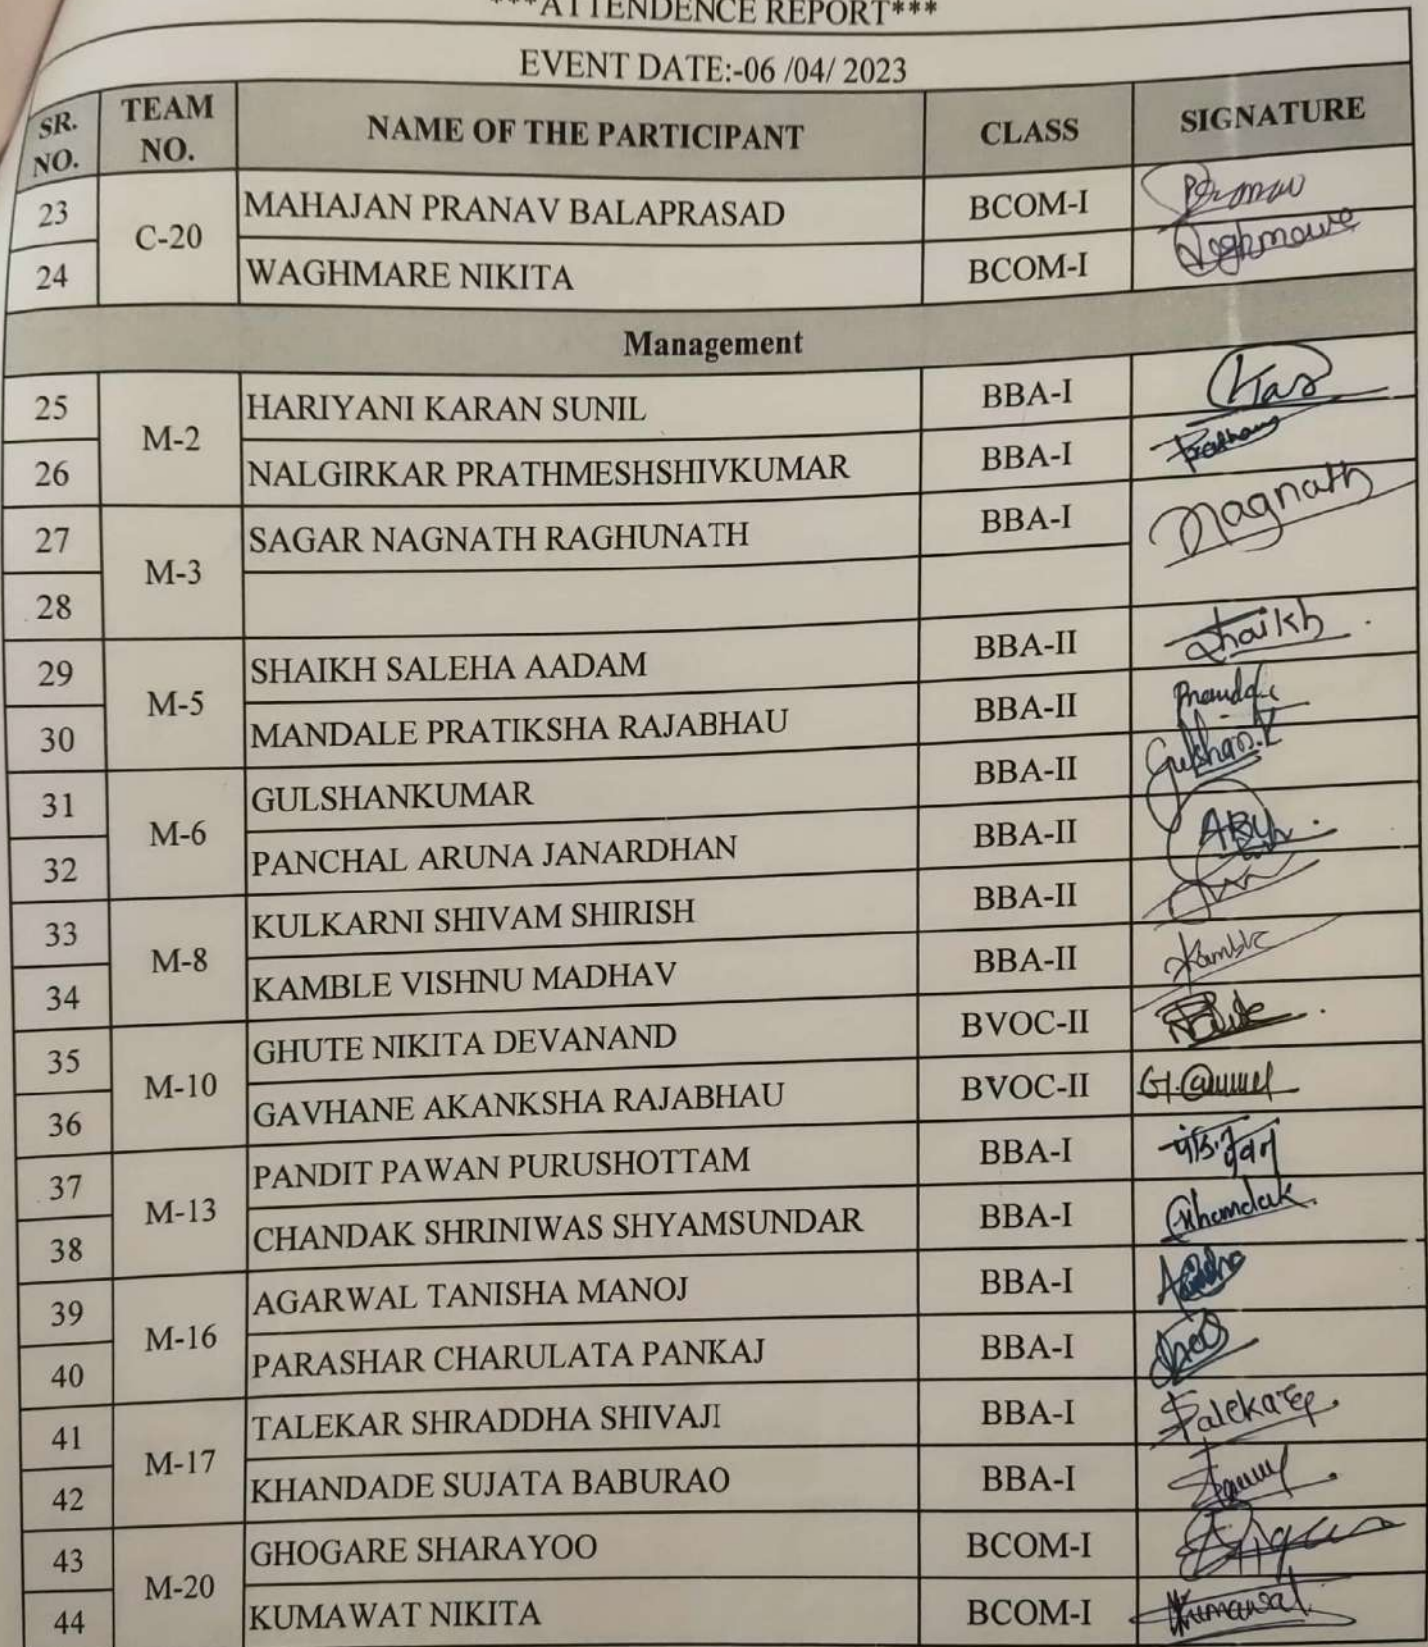 ***ATTENDENCE REPORT***
EVENT DATE:-06 /04/ 2023
SR. NO. TEAM NO. NAME OF THE PARTICIPANT CLASS SIGNATURE
23 C-20 MAHAJAN PRANAV BALAPRASAD BCOM-I
24 WAGHMARE NIKITA BCOM-I
Management
25 M-2 HARIYANI KARAN SUNIL BBA-I
26 NALGIRKAR PRATHMESHSHIVKUMAR BBA-I
27 M-3 SAGAR NAGNATH RAGHUNATH BBA-I Nagnath
28
29 M-5 SHAIKH SALEHA AADAM BBA-II Shaikh
30 MANDALE PRATIKSHA RAJABHAU BBA-II
31 M-6 GULSHANKUMAR BBA-II Gulshan.K
32 PANCHAL ARUNA JANARDHAN BBA-II
33 M-8 KULKARNI SHIVAM SHIRISH BBA-II
34 KAMBLE VISHNU MADHAV BBA-II Kamble
35 M-10 GHUTE NIKITA DEVANAND BVOC-II
36 GAVHANE AKANKSHA RAJABHAU BVOC-II
37 M-13 PANDIT PAWAN PURUSHOTTAM BBA-I
38 CHANDAK SHRINIWAS SHYAMSUNDAR BBA-I
39 M-16 AGARWAL TANISHA MANOJ BBA-I
40 PARASHAR CHARULATA PANKAJ BBA-I
41 M-17 TALEKAR SHRADDHA SHIVAJI BBA-I
42 KHANDADE SUJATA BABURAO BBA-I
43 M-20 GHOGARE SHARAYOO BCOM-I
44 KUMAWAT NIKITA BCOM-I